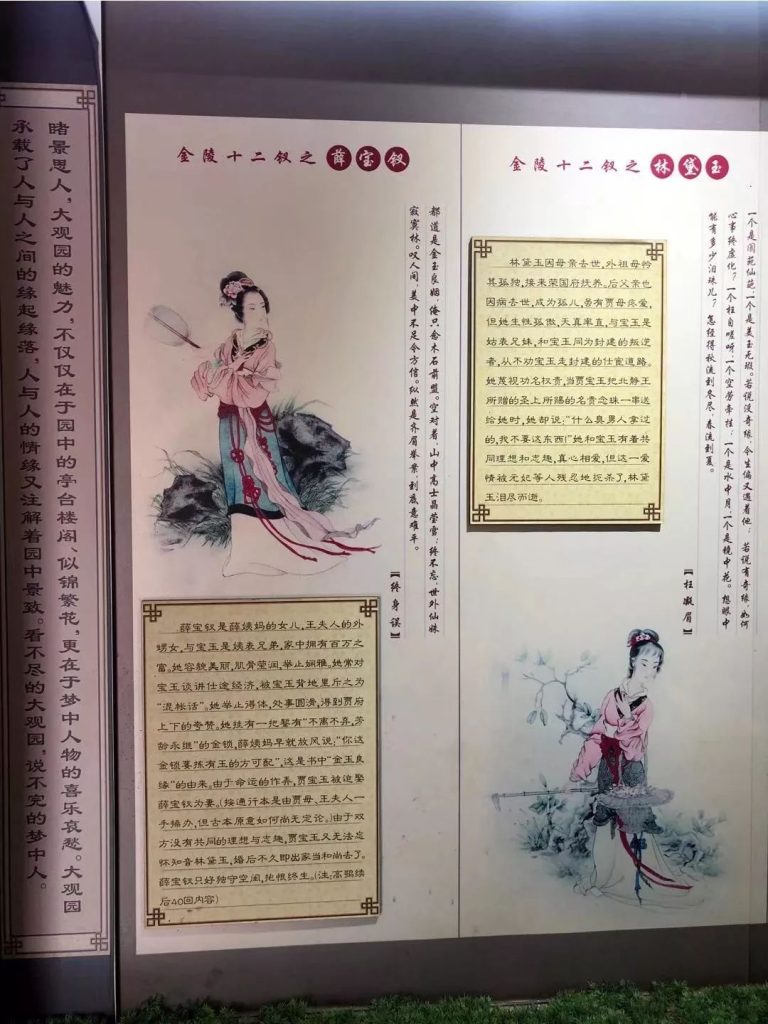 睹景思人,大观园的魅力,不仅仅在于园中的亭台楼阁、似锦繁花,更在于梦中人物的喜乐哀愁。大观园
承载了人与人之间的缘起缘落,人与人的情缘又注解着园中景致。看不尽的大观园,说不完的梦中人。
金陵十二钗之薛宝钗
都道是金玉良姻,俺只念木石前盟。空对着,山中高士晶莹雪;终不忘,世外仙姝
寂寞林。叹人间,美中不足今方信。纵然是齐眉举案,到底意难平。
【终身误】
薛宝钗是薛姨妈的女儿,王夫人的外
甥女,与宝玉是姨表兄弟,家中拥有百万之
富。她容貌美丽,肌骨莹润,举止娴雅。她常对
宝玉谈讲仕途经济,被宝玉背地里斥之为
“混帐话”。她举止得体,处事圆滑,得到贾府
上下的夸赞。她挂有一把錾有“不离不弃,芳
龄永继”的金锁,薛姨妈早就放风说:“你这
金锁要拣有玉的方可配”,这是书中“金玉良
缘”的由来。由于命运的作弄,贾宝玉被迫娶
薛宝钗为妻。(按通行本是由贾母、王夫人一
手操办,但古本原意如何尚无定论。)由于双
方没有共同的理想与志趣,贾宝玉又无法忘
怀知音林黛玉,婚后不久即出家当和尚去了。
薛宝钗只好独守空闺,抱恨终生。(注:高鹗续
后40回内容)
金陵十二钗之林黛玉
一个是阆苑仙葩,一个是美玉无瑕。若说没奇缘,今生偏又遇着他;若说有奇缘,如何
心事终虚化?一个枉自嗟呀,一个空劳牵挂;一个是水中月,一个是镜中花。想眼中
能有多少泪珠儿?怎经得秋流到冬尽,春流到夏。
【枉凝眉】
林黛玉因母亲去世,外祖母怜
其孤独,接来荣国府扶养。后父亲也
因病去世,成为孤儿,虽有贾母疼爱,
但她生性孤傲,天真率直,与宝玉是
姑表兄妹,和宝玉同为封建的叛逆
者,从不劝宝玉走封建的仕宦道路。
她蔑视功名权贵,当贾宝玉把北静王
所赠的圣上所赐的名贵念珠一串送
给她时,她却说:“什么臭男人拿过
的,我不要这东西!”她和宝玉有着共
同理想和志趣,真心相爱,但这一爱
情被元妃等人残忍地扼杀了,林黛
玉泪尽而逝。